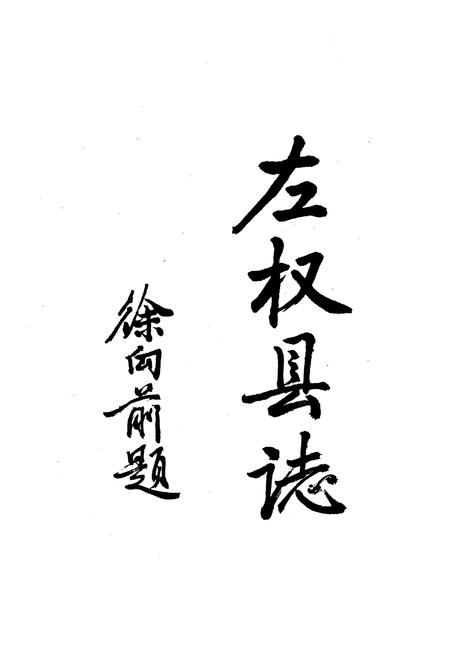 左权县誌
徐向前题